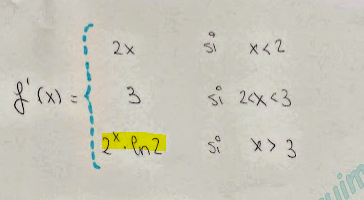 2x si x<2
f'(x) = { 3 si 2<x<3
2^x · ln2 si x>3